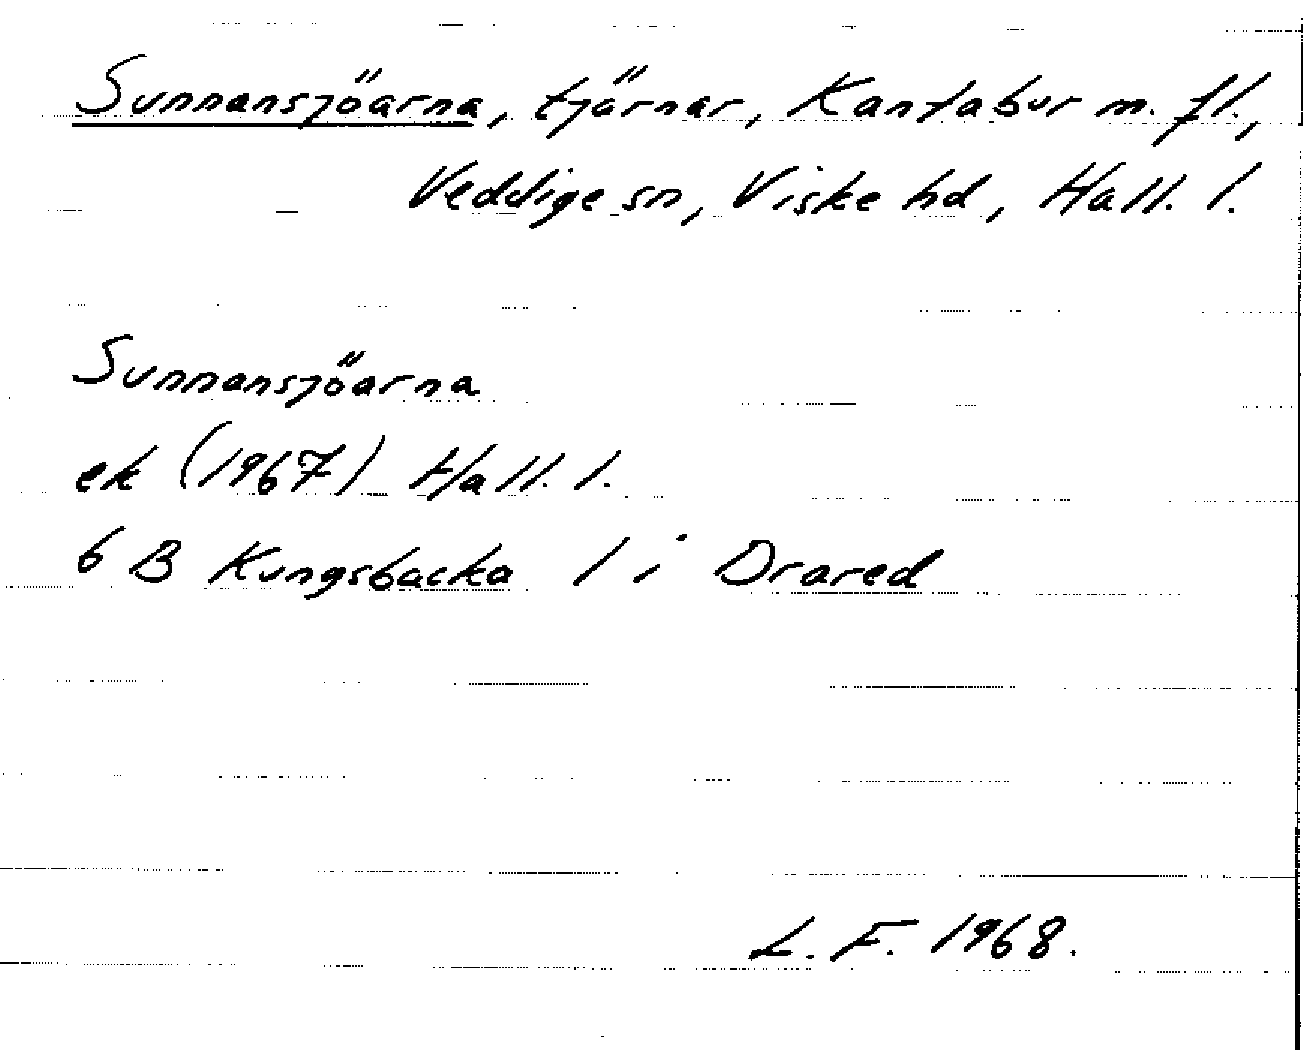 Sunnansjöarna, tjärnar, Kantabur m. fl.,
Veddige sn, Viske hd, Hall. l.
Sunnansjöarna
ek (1967) Hall. l.
6 B Kungsbacka 1 i Drared
L. F. 1968.